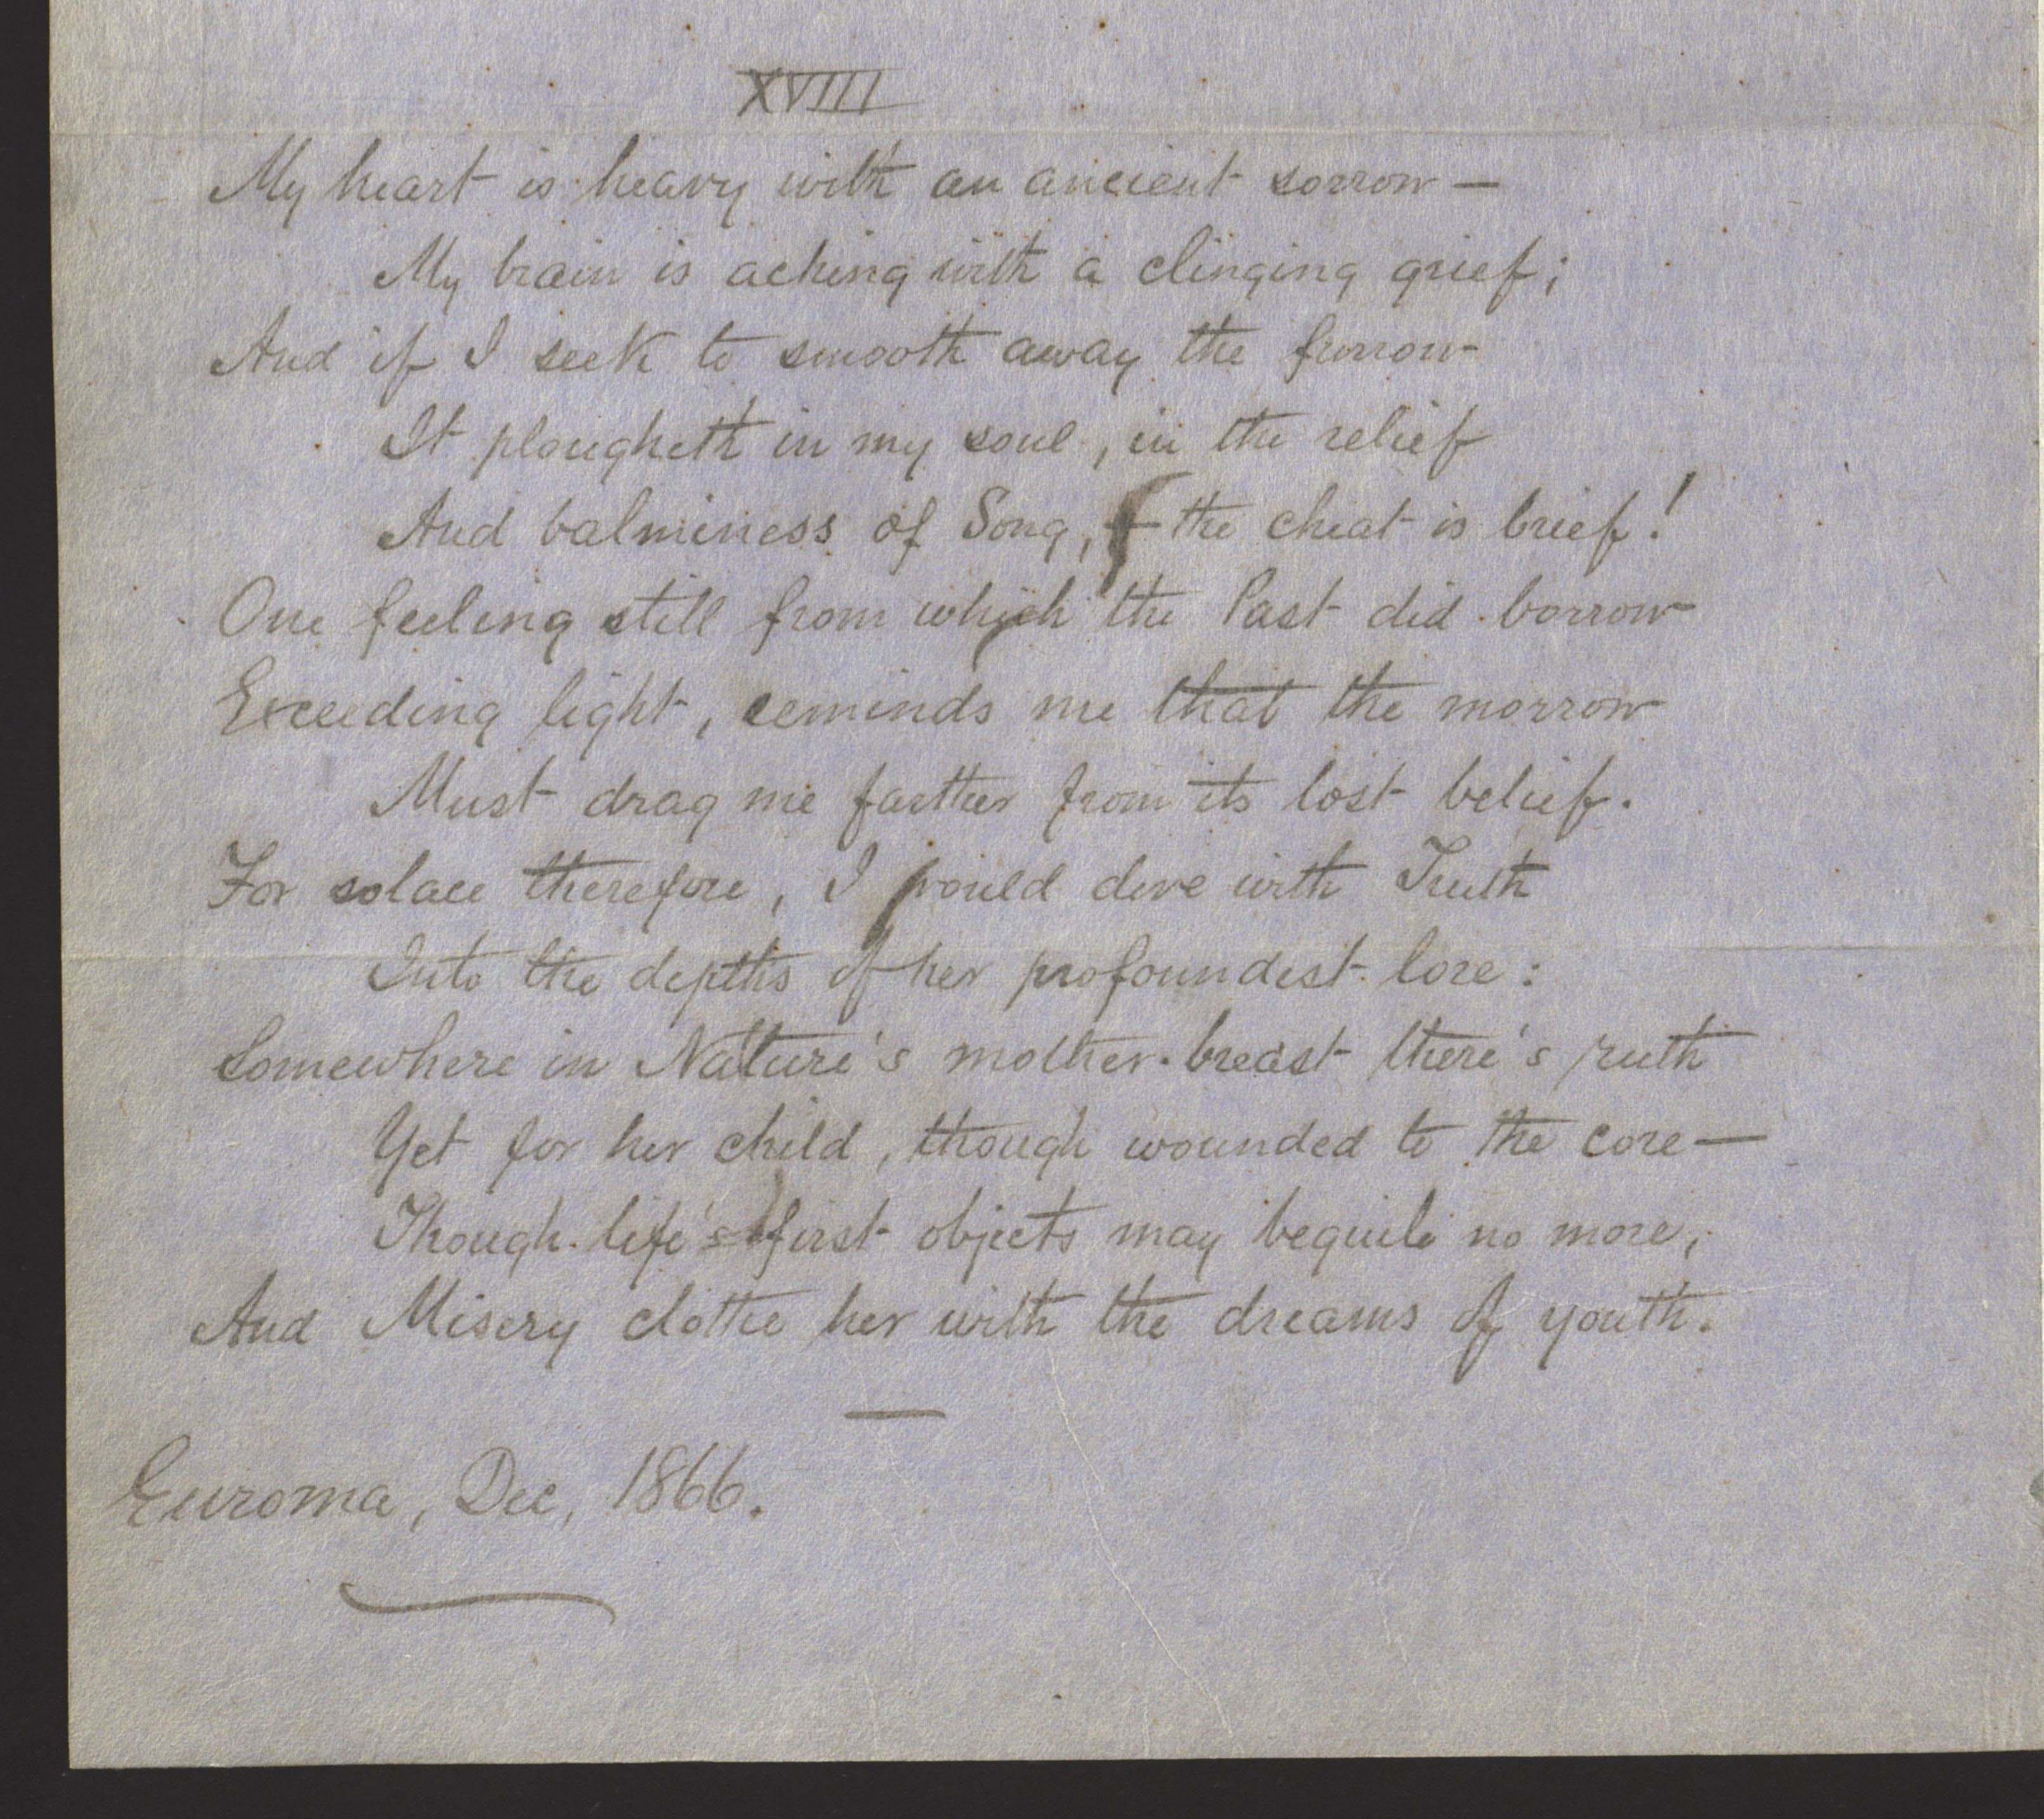 XVIII
My heart is heavy with an ancient sorrow —
My brain is aching with a clinging grief;
And if I seek to smooth away the furrow
It plougheth in my soul, in the relief
And balminess of Song, — the cheat is brief!
One feeling still from which the Past did borrow
Exceeding light, reminds me that the morrow
Must drag me farther from its lost belief.
For solace therefore, I would dive with Truth
Into the depths of her profoundest lore:
Somewhere in Nature's mother-breast there's ruth
Yet for her child, though wounded to the core —
Though life's first objects may beguile no more,
And Misery clothe her with the dreams of youth.
Euroma, Dec, 1866.